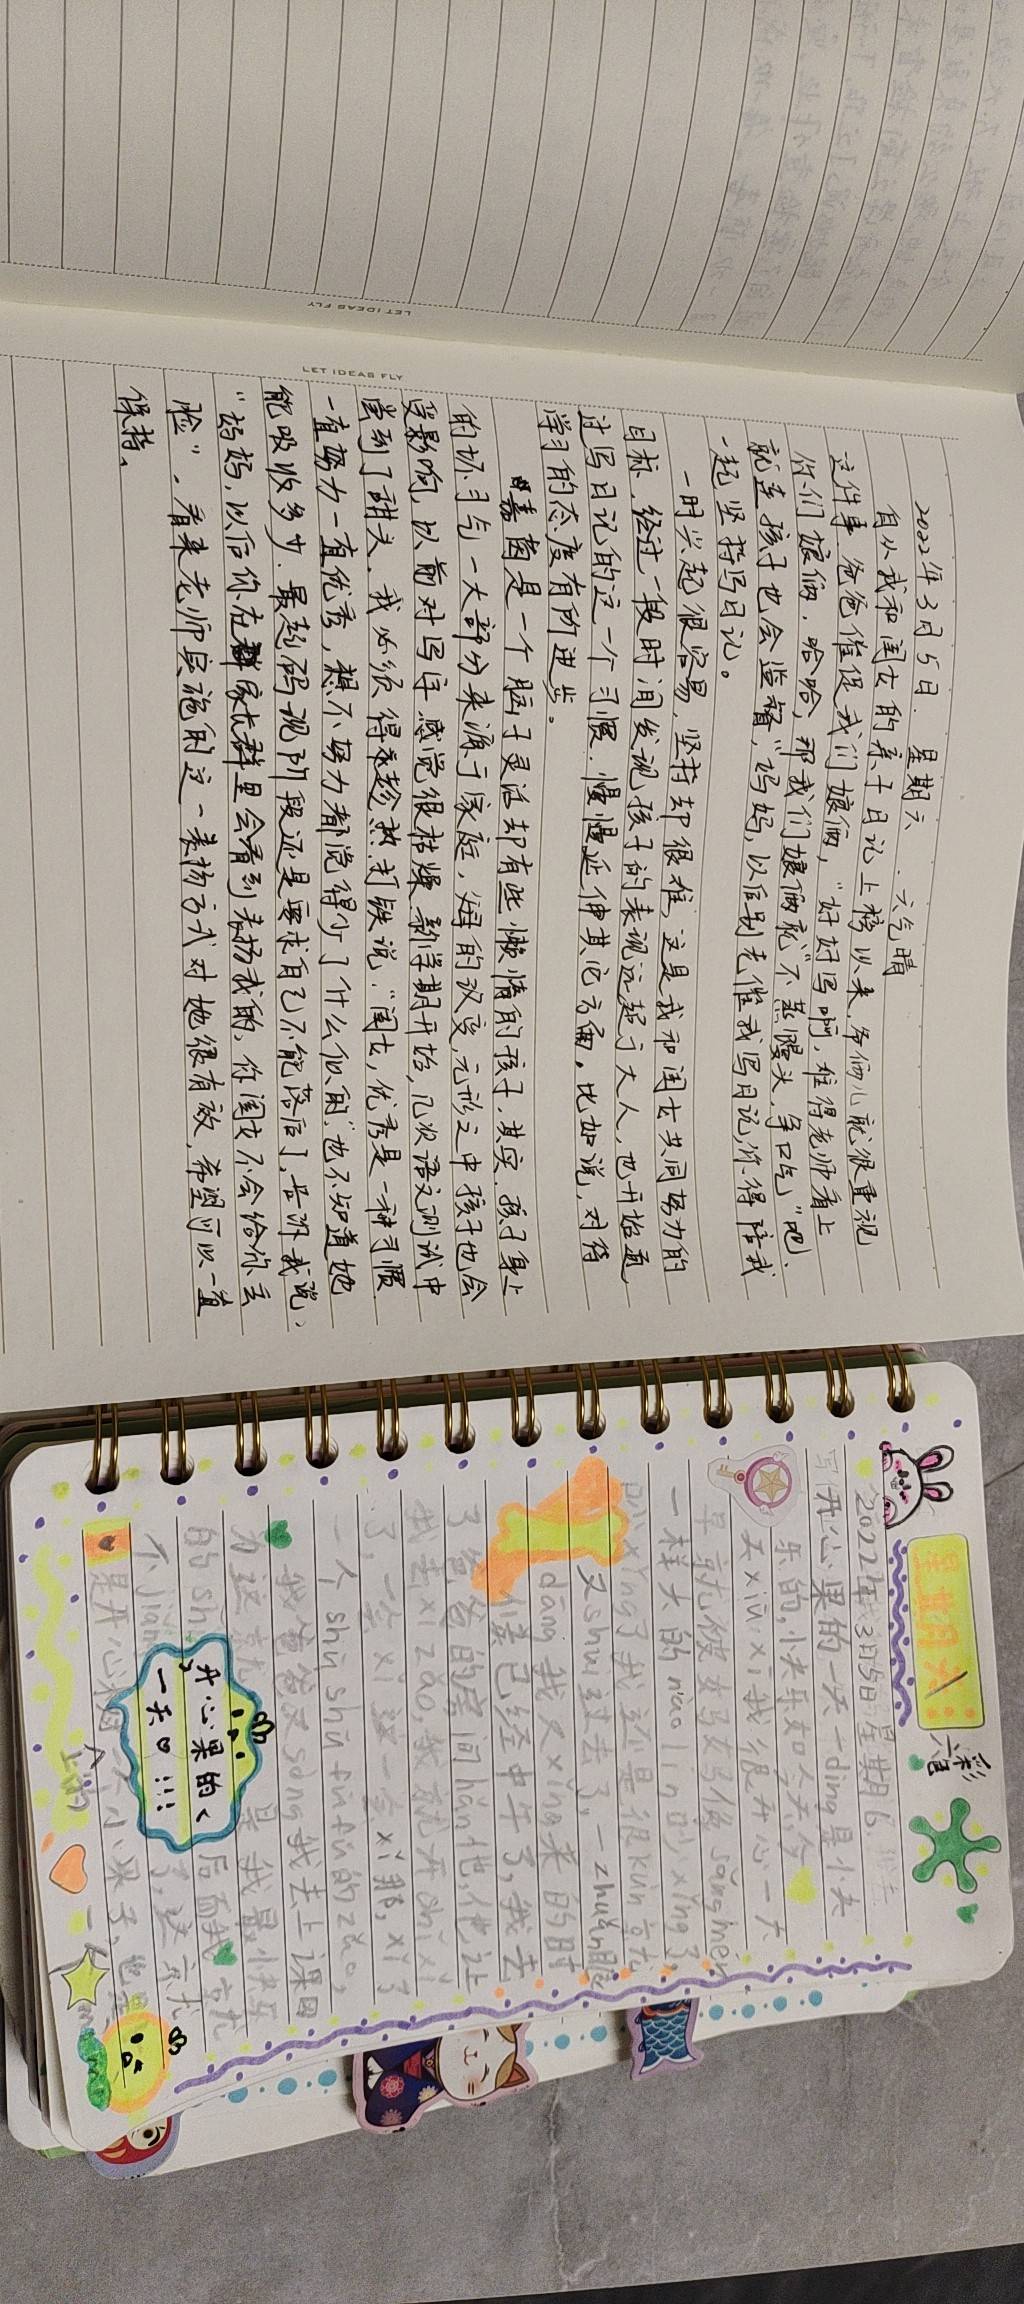 LET IDEAS FLY
LET IDEAS FLY
2022年3月5日. 星期六. 天气晴
自从我和闺女的亲子日记上榜以来,爷俩儿就很重视
这件事.爸爸催促我们娘俩,"好好写啊,难得老师看上
你们娘俩.哈哈,那我们娘俩就"不蒸馒头,争口气"吧.
就连孩子也会监督,"妈妈,以后别老催我写日记,你得陪我
一起坚持写日记。
一时兴起很容易,坚持却很难,这是我和闺女共同努力的
目标,经过一段时间发现孩子的表现远超于大人,也开始通
过写日记的这一个习惯.慢慢延伸其它方面。比如说,对待
学习的态度有所进步。
是一个脑子灵活却有些懒惰的孩子.其实,孩子身上
的坏习气一大部分来源于家庭,妈的改变,无形之中孩子也会
受影响,以前对写字,感觉很枯燥.新学期开始,几次语文测试中
尝到了甜头.我必须得趁热打铁说."闺女,优秀是一种习惯
一直努力一直优秀,想不努力都觉得少了什么似的,"也不知道她
能吸收多少.最起码现阶段还是要求自己不能落后了,告诉我说:
"妈妈,以后你在家长群里会看到表扬我的,你闺女不会给你丢
脸".看来老师实施的这一表扬方式对她很有效,希望可以一直
保持.
星期六
彩色
2022年3月5日 星期6.
写开心果的一天一dìng是小夫
乐的,小快乐如人天,今
天xiū xi我很开心一大
早就被麦
一样大的niǎo lín的xǐng了
xǐng了我还是很kùn 京尤
又shuì过去了,一zhuǎn眼
dāng 我又xǐng来的时
候已经中午了,我去
了爸爸的房间hǎn他,他让
我去xǐ zǎo,我就开shǐ xǐ
了,一会xǐ这一会xǐ那,xǐ了
一个shū shū fú fú的zǎo,
我爸爸又sòng我去上课因
为这
的shí 后面我
个jiàn 了,这
是开心果
开心果的
一天♡!!!
上的